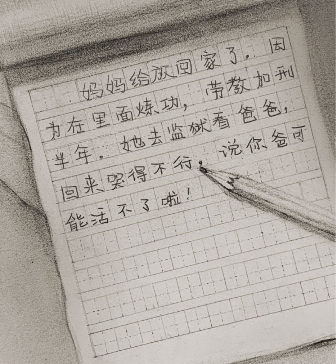 妈妈给放回家了，因
为在里面炼功，劳教加刑
半年。她去监狱看爸爸，
回来哭得不行。说你爸可
能活不了啦！